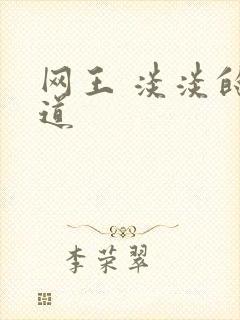 网王 淡淡的
道
李荣翠